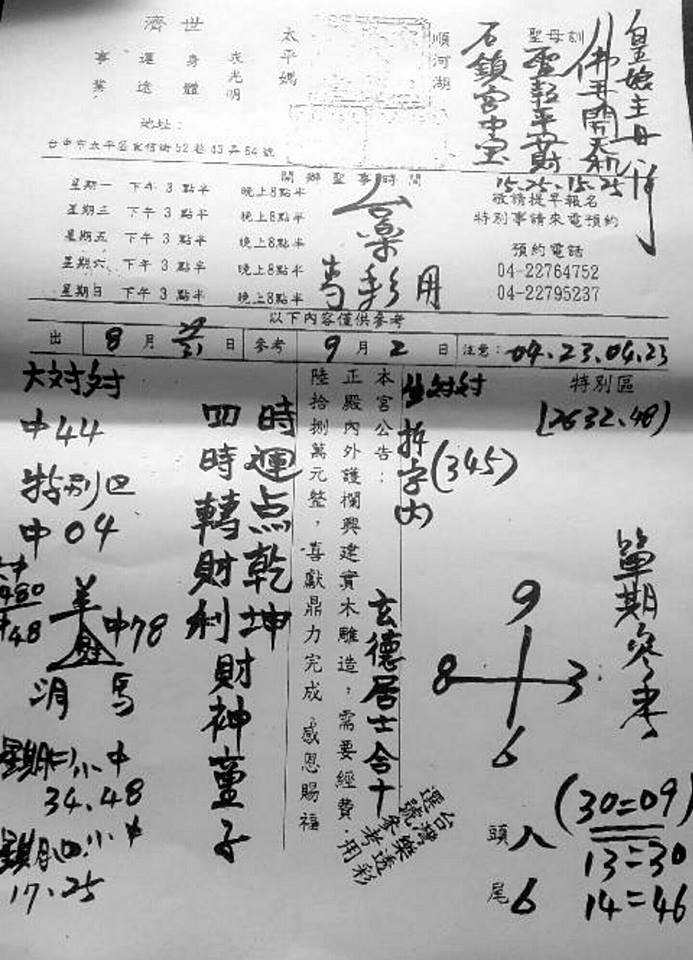 濟世
事業
運途
身體
太平媽
順河湖
聖母訓
石鎮宮中宝
皇娘主母
地址:
開辦聖事時間
星期一 下午 3 點半 晚上8點半
星期三 下午 3 點半 晚上8點半
星期五 下午 3 點半 晚上8點半
星期六 下午 3 點半 晚上8點半
星期日 下午 3 點半 晚上8點半
15.25.15.25
敬請提早報名
特別事請來電預約
預約電話
04-22764752
04-22795237
彩用
以下內容僅供參考
出 8 月 日 參考 9 月 2 日 注意: 04.23.04.23
特別區
(2632.48)
(345)
拆字内
本宮公告:
正殿內外護欄興建實木雕造,需要經費
陸拾捌萬元整,喜獻鼎力完成,感恩賜福
玄德居士合十
時運点乾坤
四時轉財利財神薑子
大対対
中44
特別区
中04
480
48
羊
中78
馬
小中
34.48
小中
17.25
台灣樂透彩
選號參考用
單期參考
9
8 3
6
頭
尾 6
(30=09)
13=30
14=46